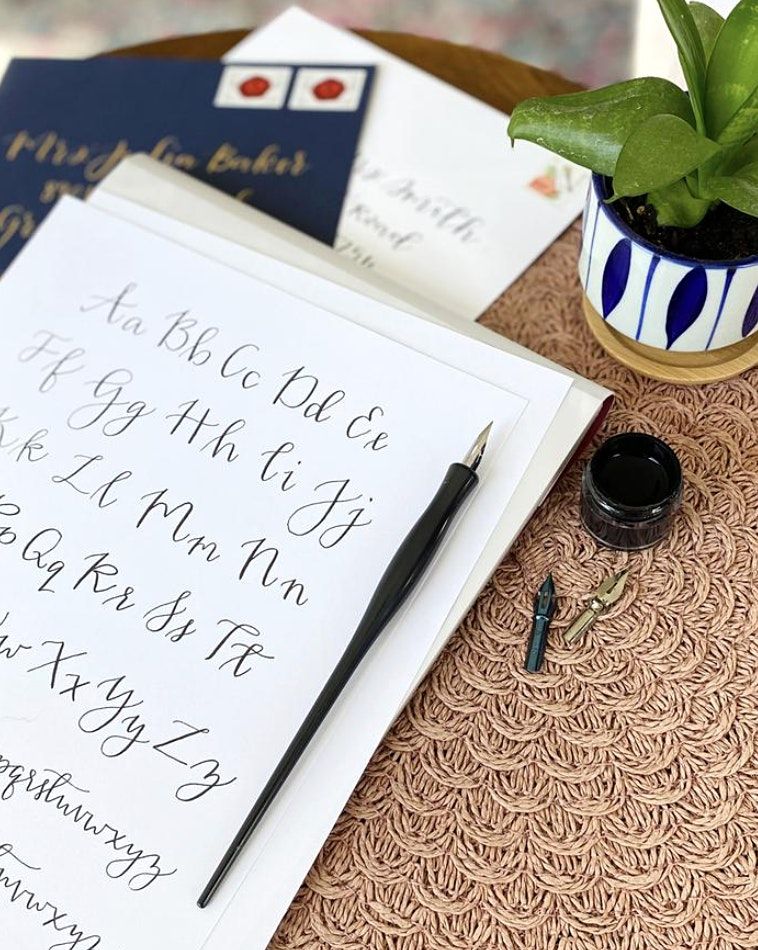 Mrs Julia Baker
Smith
Road
Aa Bb Cc Dd Ee
Ff Gg Hh Ii Jj
Kk Ll Mm Nn
Pp Qq Rr Ss Tt
w Xx Yy Zz
pqrstuvwxyz
tuvwxyz